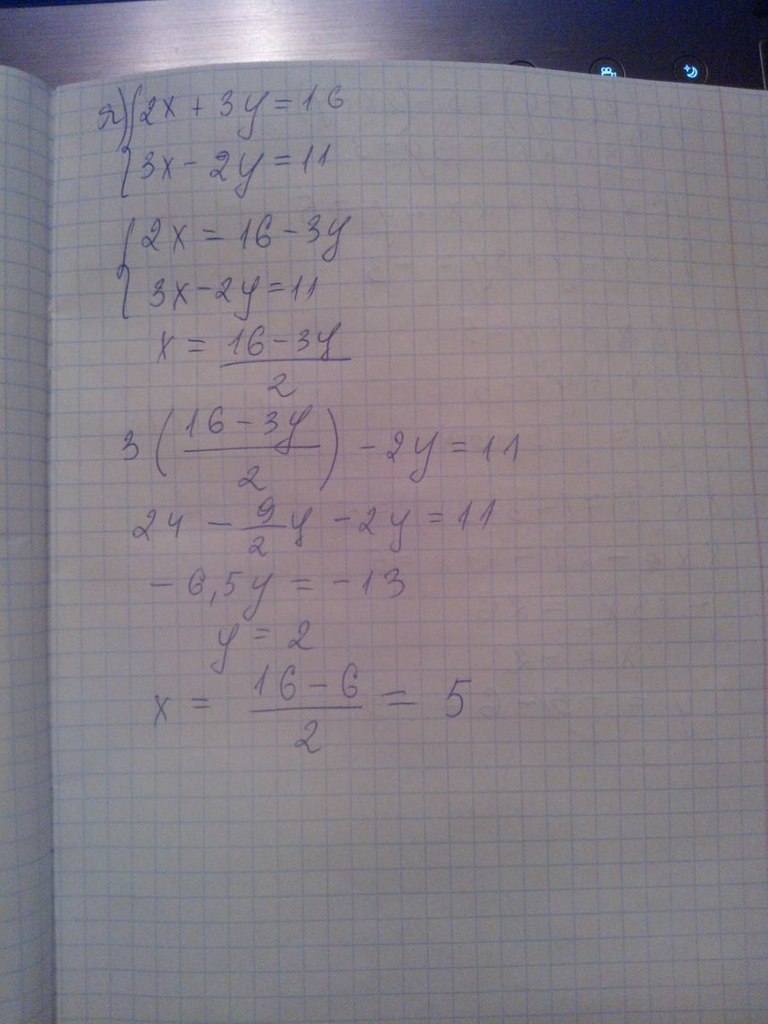 а) { 2x + 3y = 16
3x - 2y = 11
{ 2x = 16 - 3y
3x - 2y = 11
x = (16 - 3y)/2
3 ( (16 - 3y)/2 ) - 2y = 11
24 - 9/2 y - 2y = 11
- 6,5y = - 13
y = 2
x = (16 - 6)/2 = 5